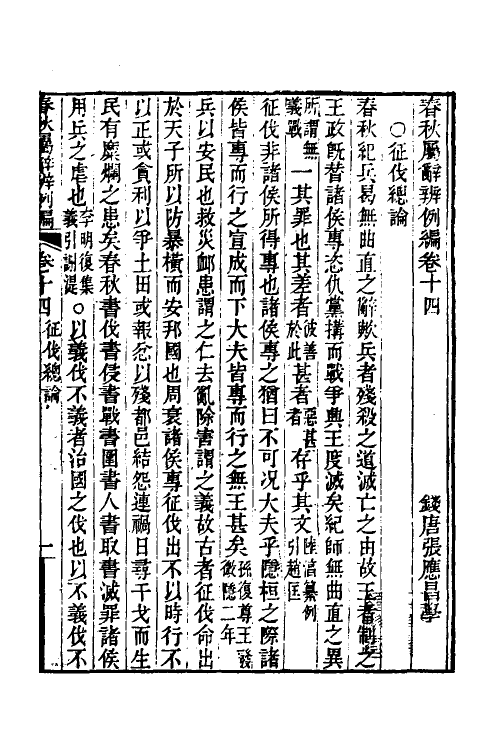 春秋屬辭辨例編卷十四
錢唐張應昌學
○征伐總論
春秋紀兵曷無曲直之辭歟兵者殘殺之道滅亡之由故王者制之
王政旣替諸侯專恣仇黨搆而戰爭興王度滅矣紀師無曲直之異
所謂無義戰一其罪也其差者彼善於此甚者惡甚者存乎其文陸湻纂例引趙匡
征伐非諸侯所得專也諸侯專之猶曰不可况大夫乎隱桓之際諸
侯皆專而行之宣成而下大夫皆專而行之無王甚矣孫復尊王發微隱二年
兵以安民也救災卹患謂之仁去亂除害謂之義故古者征伐命出
於天子所以防暴橫而安邦國也周衰諸侯專征伐出不以時行不
以正或貪利以爭土田或報忿以殘都邑結怨連禍日尋干戈而生
民有糜爛之患矣春秋書伐書侵書戰書圍書入書取書滅罪諸侯
用兵之虐也李明復集義引謝湜○以義伐不義者治國之伐也以不義伐不
春秋屬辭辨例編 卷十四 征伐總論 一